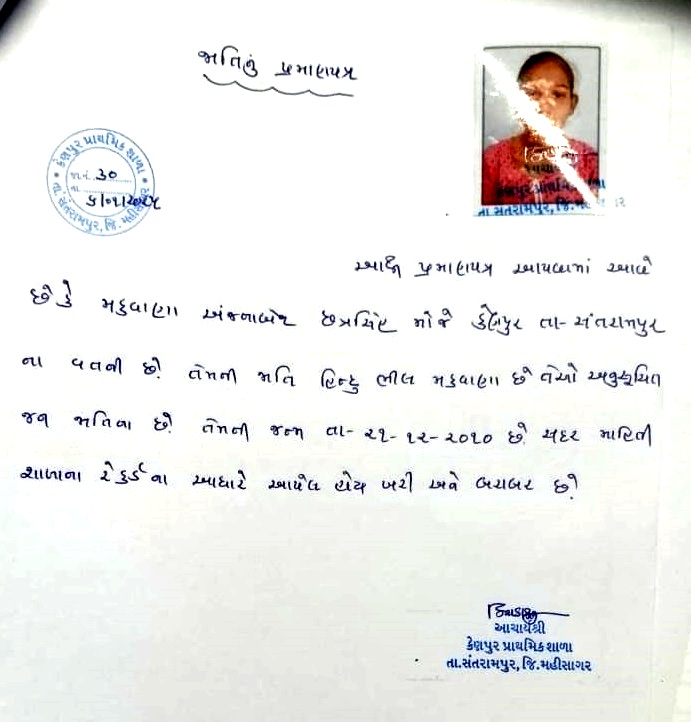 જાતિનું પ્રમાણપત્ર
કેણપુર પ્રાથમિક શાળા
જા.નં. 30
તા.
તા. સંતરામપુર, જિ. મહીસાગર
આચાર્યશ્રી
કેણપુર પ્રાથમિક શાળા
તા. સંતરામપુર, જિ.
આથી પ્રમાણપત્ર આપવામાં આવે
છે કે મકવાણા અંજનાબેન છત્રસિંહ મોજે કેણપુર તા- સંતરામપુર
ના વતની છે. તેમની જાતિ હિન્દુ ભીલ મકવાણા છે તેઓ અનુસૂચિત
જન જાતિના છે. તેમની જન્મ તા- ૨૧-૧૨-૨૦૧૦ છે. સદર માહિતી
શાળાના રેકર્ડના આધારે આપેલ હોય ખરી અને બરાબર છે.
આચાર્યશ્રી
કેણપુર પ્રાથમિક શાળા
તા.સંતરામપુર, જિ.મહીસાગર